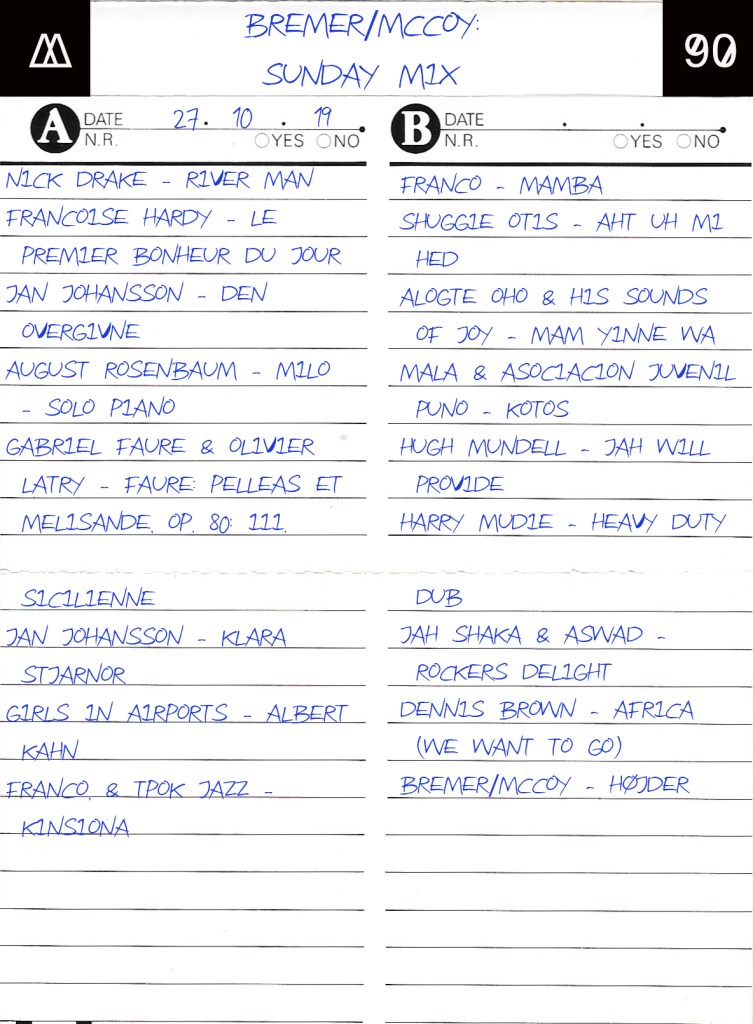 BREMER/MCCOY:
SUNDAY MIX
90
A DATE 27. 10. 19
N.R. YES NO
NICK DRAKE - RIVER MAN
FRANCOISE HARDY - LE
PREMIER BONHEUR DU JOUR
JAN JOHANSSON - DEN
OVERGIVNE
AUGUST ROSENBAUM - MILO
- SOLO PIANO
GABRIEL FAURE & OLIVIER
LATRY - FAURE: PELLEAS ET
MELISANDE, OP. 80: III.
SICILIENNE
JAN JOHANSSON - KLARA
STJARNOR
GIRLS IN AIRPORTS - ALBERT
KAHN
FRANCO, & TPOK JAZZ -
KINSIONA
B DATE . .
N.R. YES NO
FRANCO - MAMBA
SHUGGIE OTIS - AHT UH MI
HED
ALOGTE OHO & HIS SOUNDS
OF JOY - MAM YINNE WA
MALA & ASOCIACION JUVENIL
PUNO - KOTOS
HUGH MUNDELL - JAH WILL
PROVIDE
HARRY MUDIE - HEAVY DUTY
DUB
JAH SHAKA & ASWAD -
ROCKERS DELIGHT
DENNIS BROWN - AFRICA
(WE WANT TO GO)
BREMER/MCCOY - HØJDER